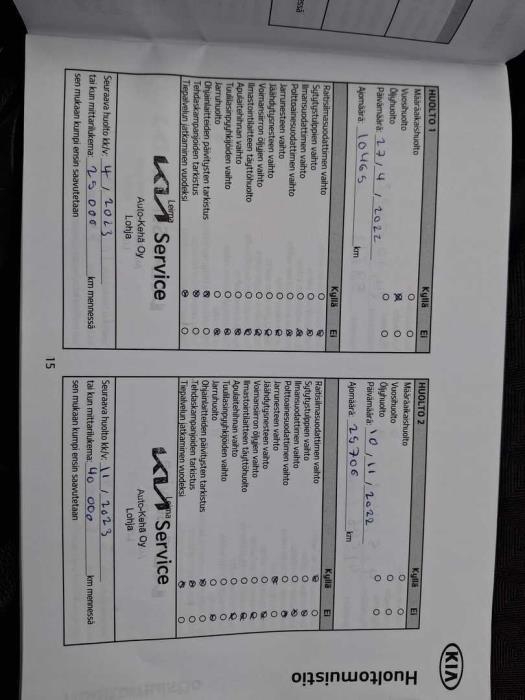 KIA
Huoltomuistio
HUOLTO 1
Kyllä Ei
Määräaikaishuolto
Vuosihuolto
Öljyhuolto
Päivämäärä: 27/4/2022
Ajomäärä: 10465 km
Kyllä Ei
Raitisilmasuodattimen vaihto
Sytytystulppien vaihto
Ilmansuodattimen vaihto
Polttoainesuodattimen vaihto
Jarrunesteen vaihto
Jäähdytysnesteen vaihto
Voimansiirron öljyjen vaihto
Ilmastointilaitteen täyttöhuolto
Apulaitehihnan vaihto
Tuulilasinpyyhkijöiden vaihto
Jarruhuolto
Ohjainlaitteiden päivitysten tarkistus
Tehdaskampanjoiden tarkistus
Tiepalvelun jatkaminen vuodeksi
Leima
KIA Service
Auto-Kehä Oy
Lohja
Seuraava huolto kk/v: 4/2023
tai kun mittarilukema: 25 000 km mennessä
sen mukaan kumpi ensin saavutetaan
HUOLTO 2
Kyllä Ei
Määräaikaishuolto
Vuosihuolto
Öljyhuolto
Päivämäärä: 10/11/2022
Ajomäärä: 25706 km
Kyllä Ei
Raitisilmasuodattimen vaihto
Sytytystulppien vaihto
Ilmansuodattimen vaihto
Polttoainesuodattimen vaihto
Jarrunesteen vaihto
Jäähdytysnesteen vaihto
Voimansiirron öljyjen vaihto
Ilmastointilaitteen täyttöhuolto
Apulaitehihnan vaihto
Tuulilasinpyyhkijöiden vaihto
Jarruhuolto
Ohjainlaitteiden päivitysten tarkistus
Tehdaskampanjoiden tarkistus
Tiepalvelun jatkaminen vuodeksi
Leima
KIA Service
Auto-Kehä Oy
Lohja
Seuraava huolto kk/v: 11/2023
tai kun mittarilukema: 40 000 km mennessä
sen mukaan kumpi ensin saavutetaan
15